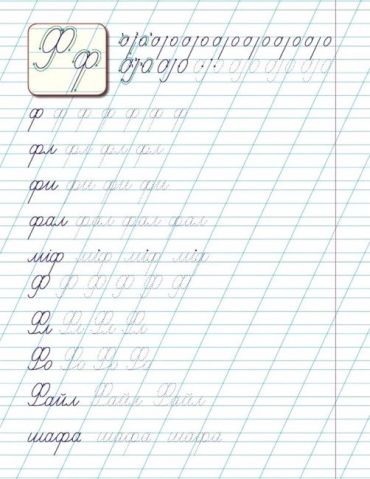 Ф ф
ф ф ф ф ф ф ф
фл фл фл фл
фи фи фи фи
фал фал фал фал
міф міф міф міф
Ф Ф Ф Ф Ф Ф
Фл Фл Фл Фл
Фо Фо Фо Фо
Файл Файл Файл
шафа шафа шафа